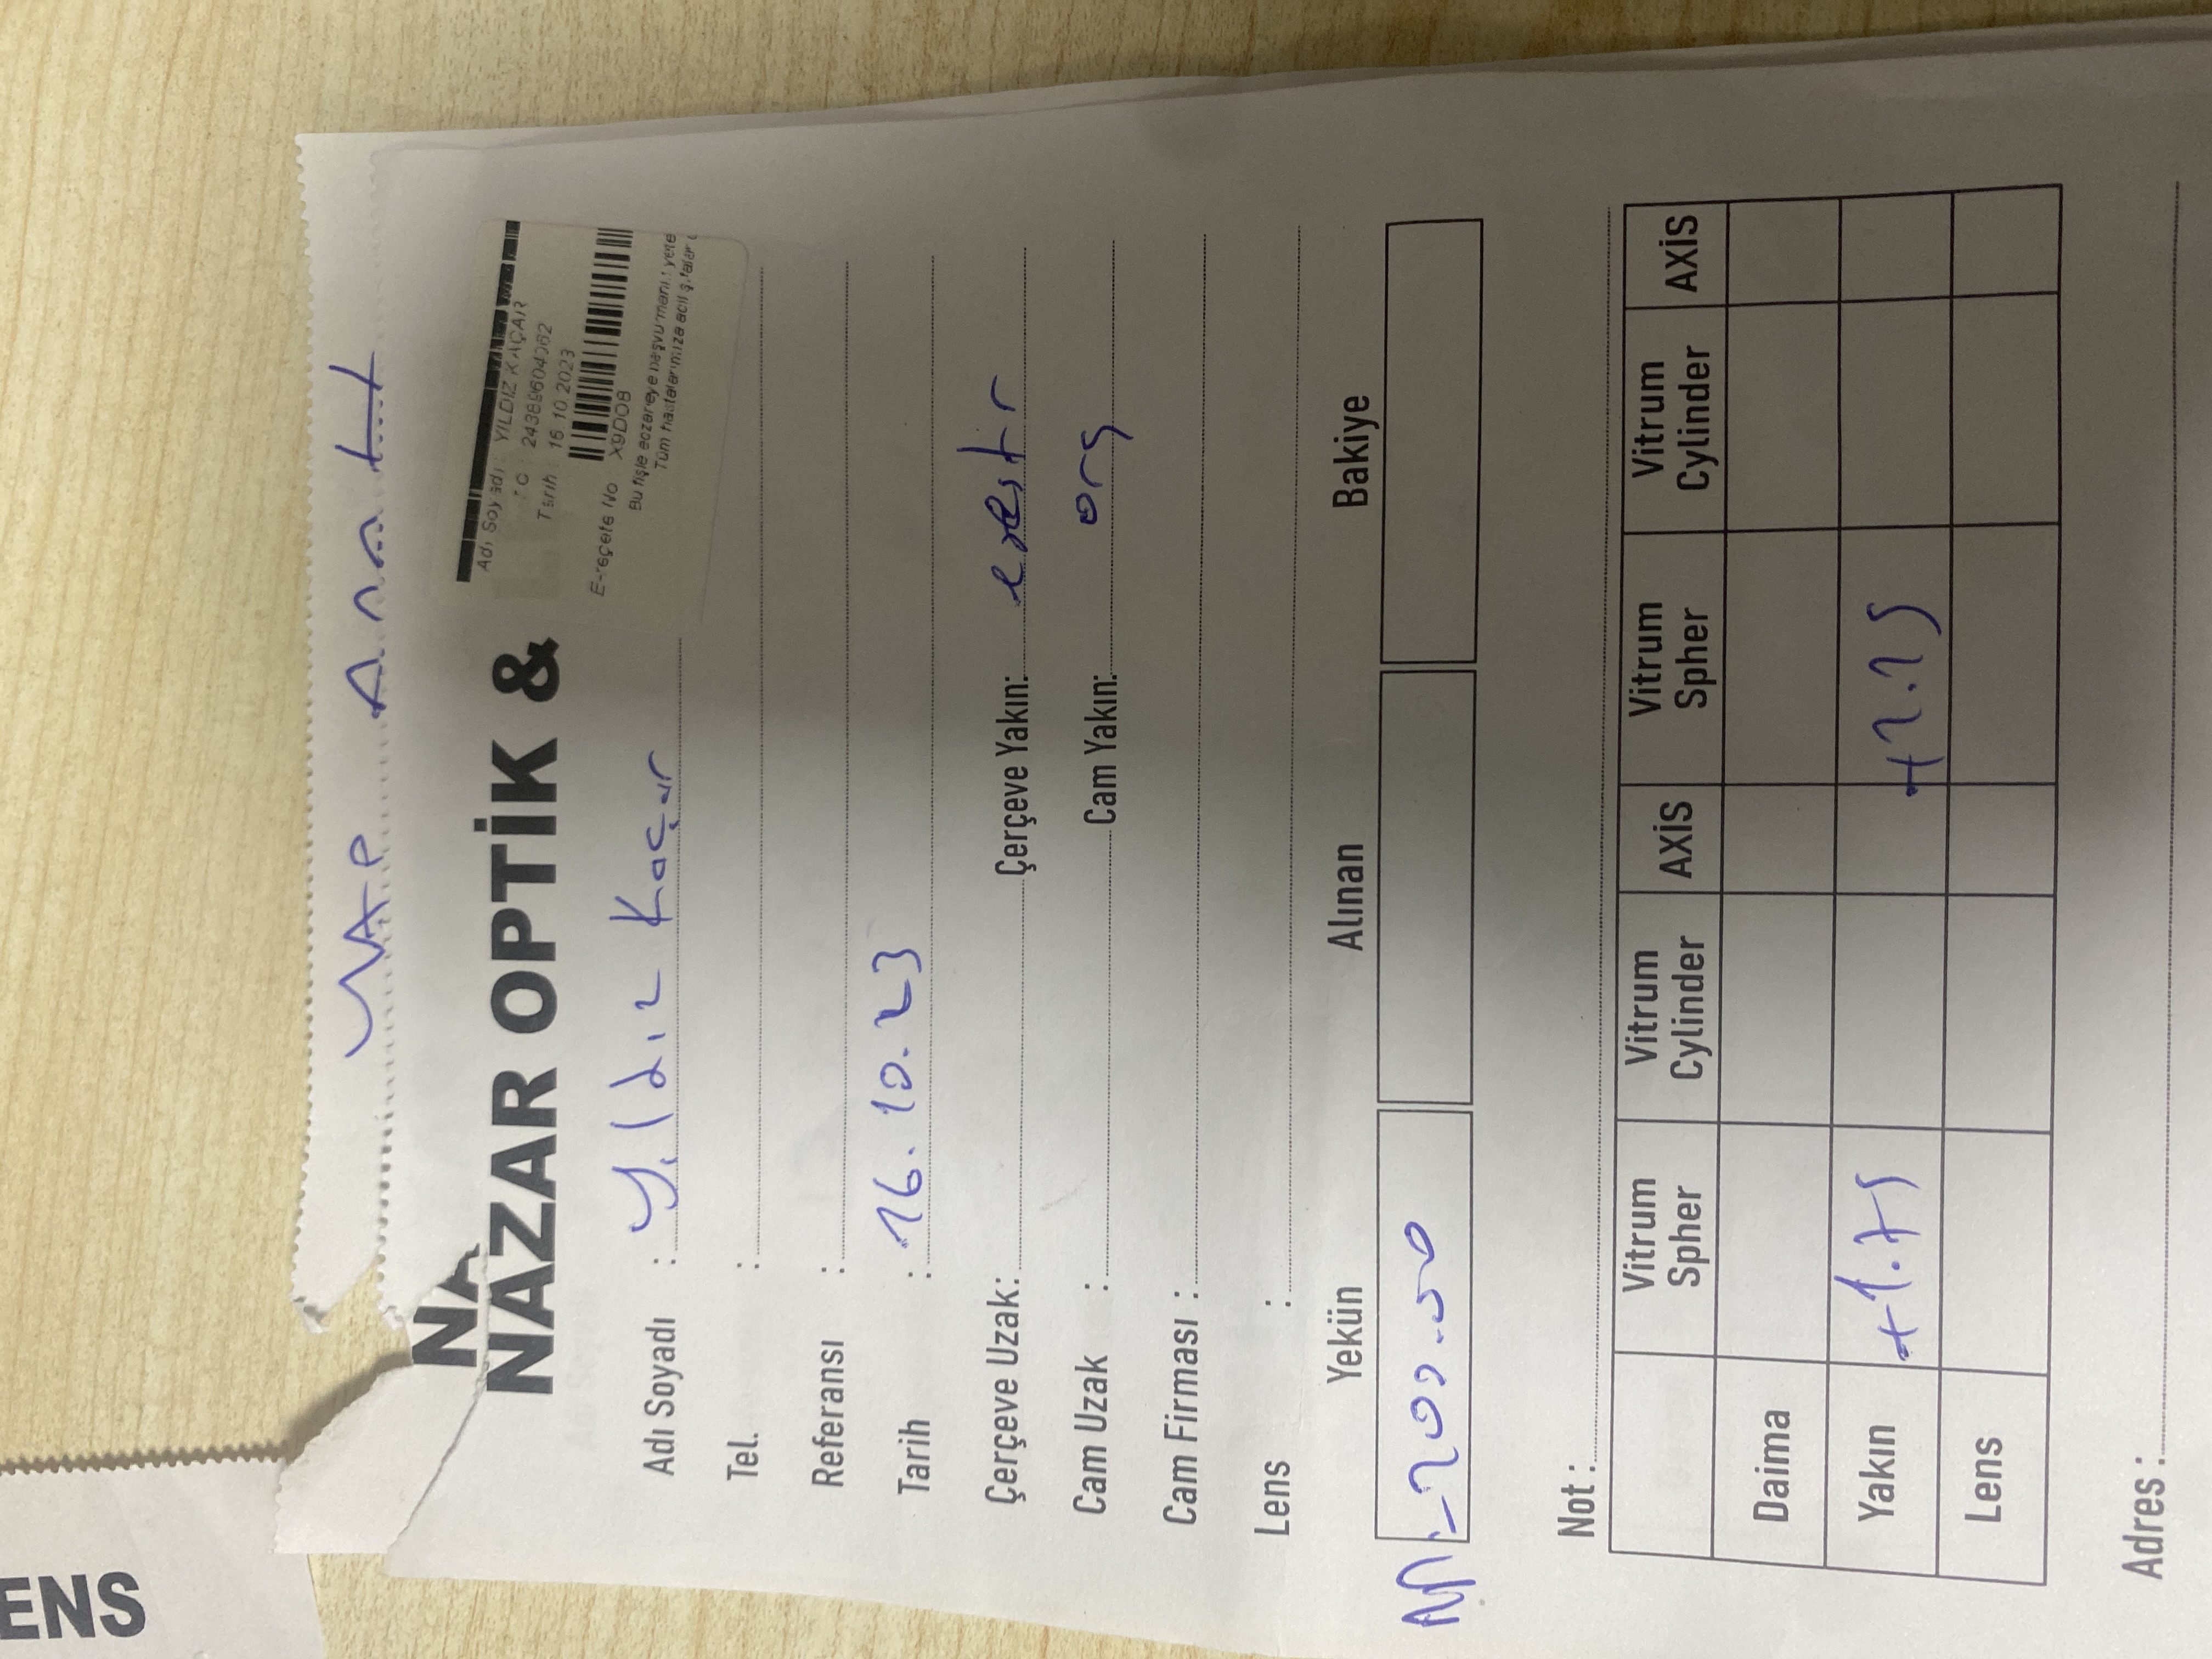 ENS
YAP
NA
NAZAR OPTİK &
Adı Soyadı : YILDIZ KAÇAR
TC :
Tarih : 16.10.2023
E-reçete No X9D08
Bu fişle eczaneye başvurmanız yete
Tüm hastalarımıza acil şifalar
Adı Soyadı : Yıldız Kaçar
Tel. :
Referansı :
Tarih : 16.10.23
Çerçeve Uzak: Çerçeve Yakın:
Cam Uzak : Cam Yakın: org
Cam Firması :
Lens :
Yekün Alınan Bakiye
200.00
Not :
Vitrum Spher Vitrum Cylinder AXİS Vitrum Spher Vitrum Cylinder AXİS
Daima
Yakın +1.75 +2.25
Lens
Adres :